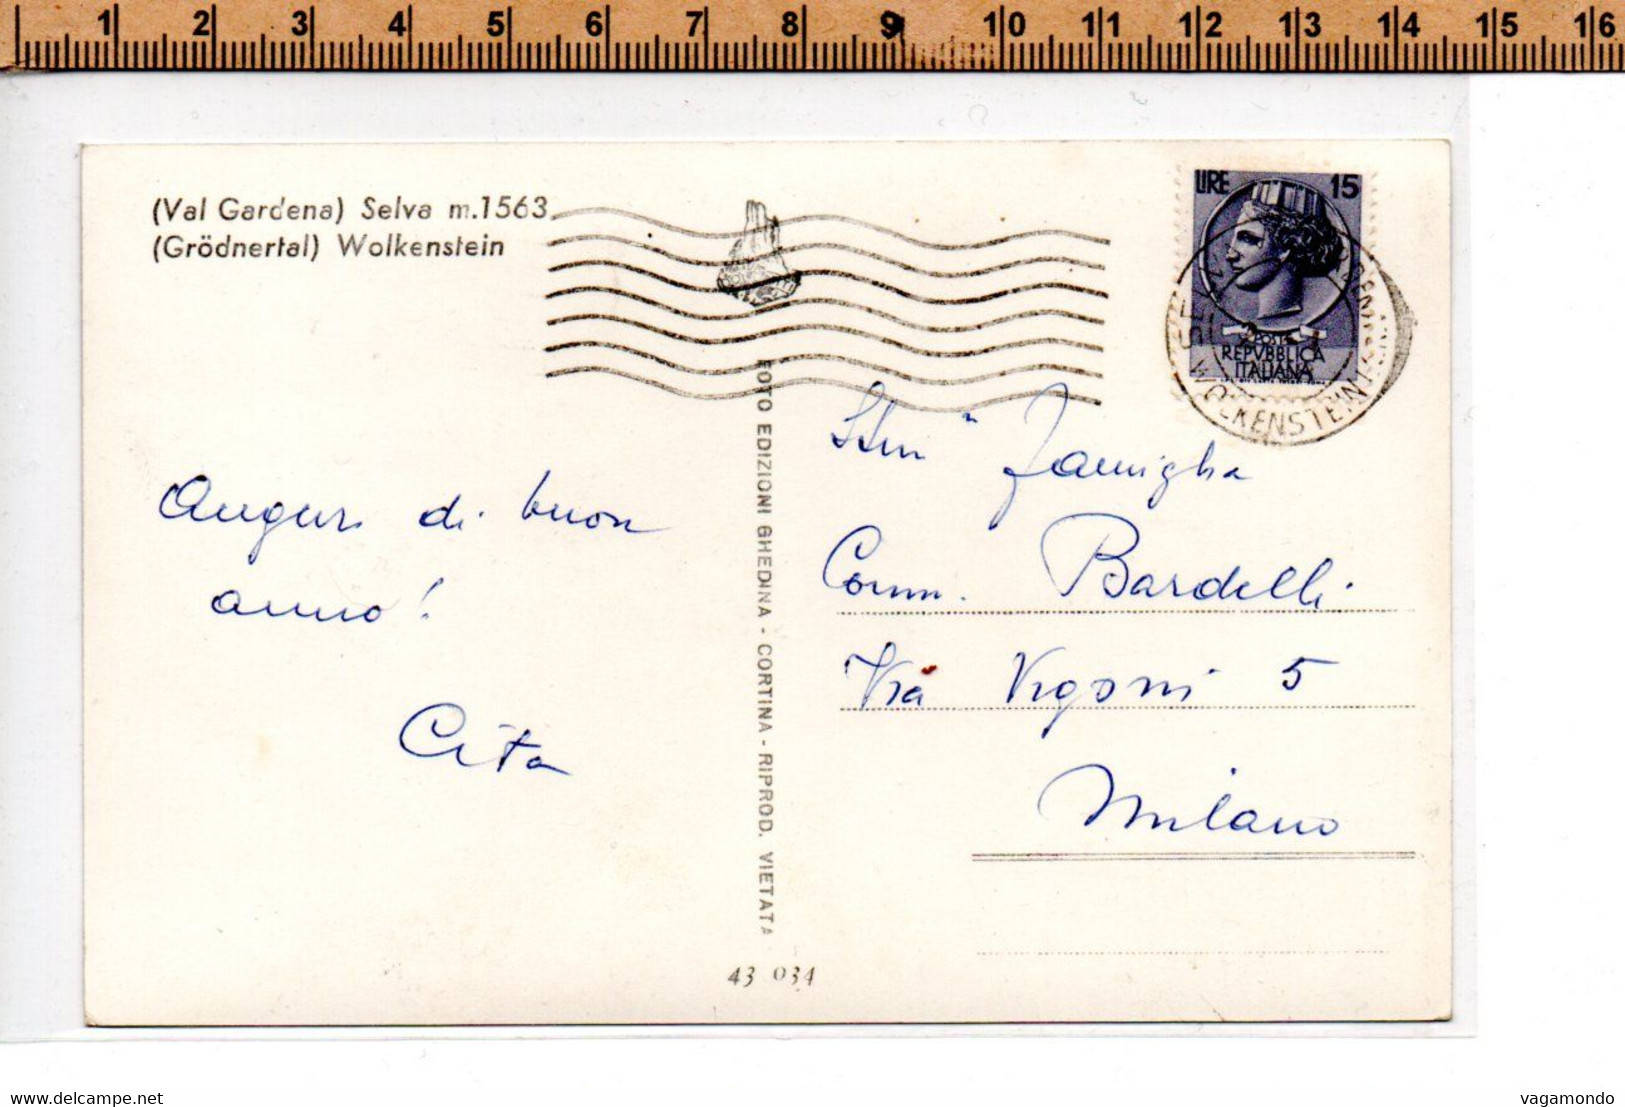 1 2 3 4 5 6 7 8 9 10 11 12 13 14 15 16
(Val Gardena) Selva m.1563
(Grödnertal) Wolkenstein
LIRE 15
POSTE
REPVBBLICA
ITALIANA
WOLKENSTEIN
Auguri di buon
anno!
Cita
FOTO EDIZIONI GHEDINA - CORTINA - RIPROD. VIETATA
43 034
Famiglia
Comm. Bardelli
Via Vigoni 5
Milano
www.delcampe.net
vagamondo